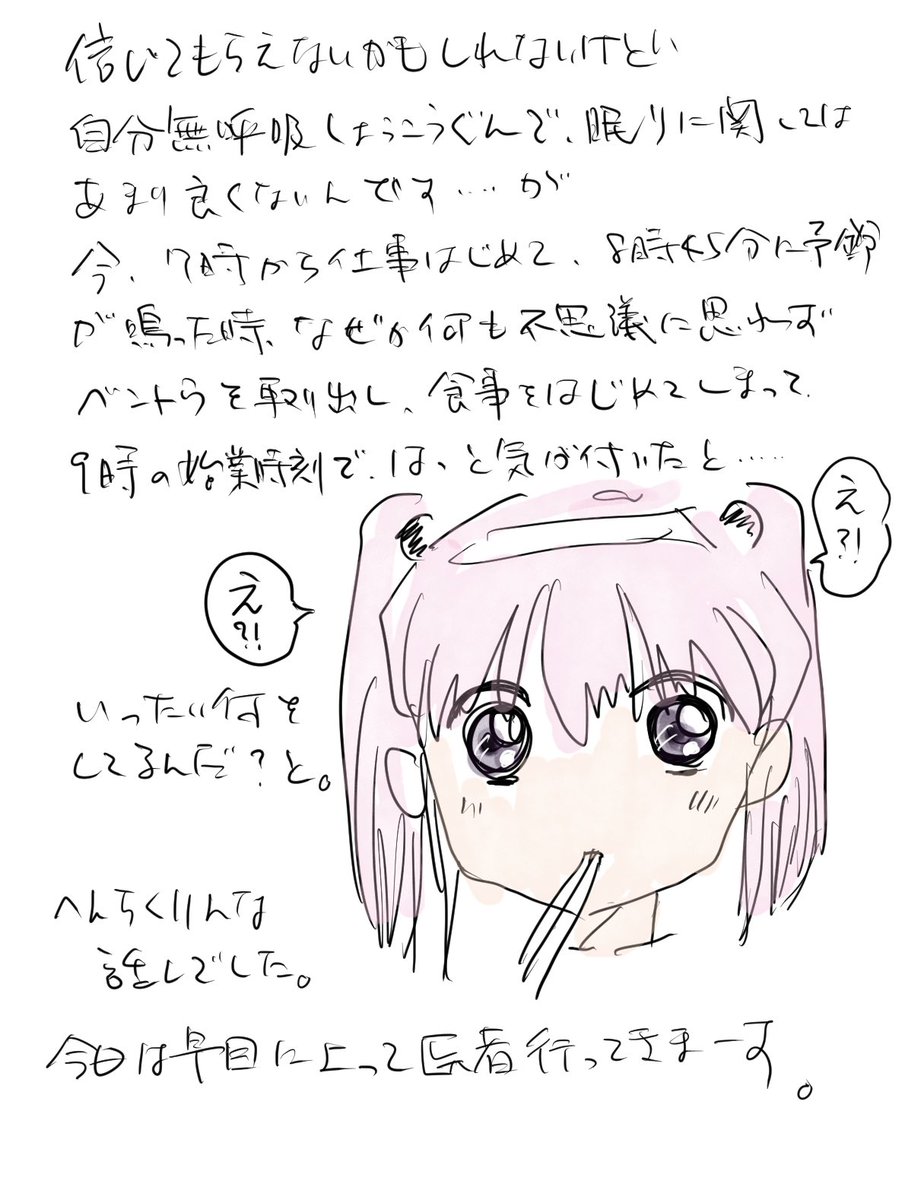 信じてもらえないかもしれないけどい
自分無呼吸しょうこうぐんで、眠りに関しては
あまり良くないんです……が
今、7時から仕事はじめて、8時45分に予鈴
が鳴った時、なぜか何も不思議に思わず
ベントうを取り出し、食事をはじめてしまって
9時の始業時刻で、はっと気が付いたと……
え?!
え?!
いったい何を
してるんだ?と。
へんちくりんな
話しでした。
今日は早目に上って医者行ってきまーす。